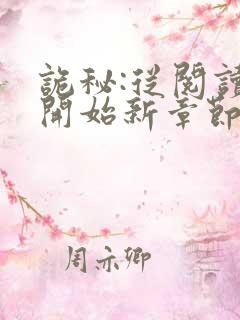 詭秘:從閱讀
開始新章節
周示卿